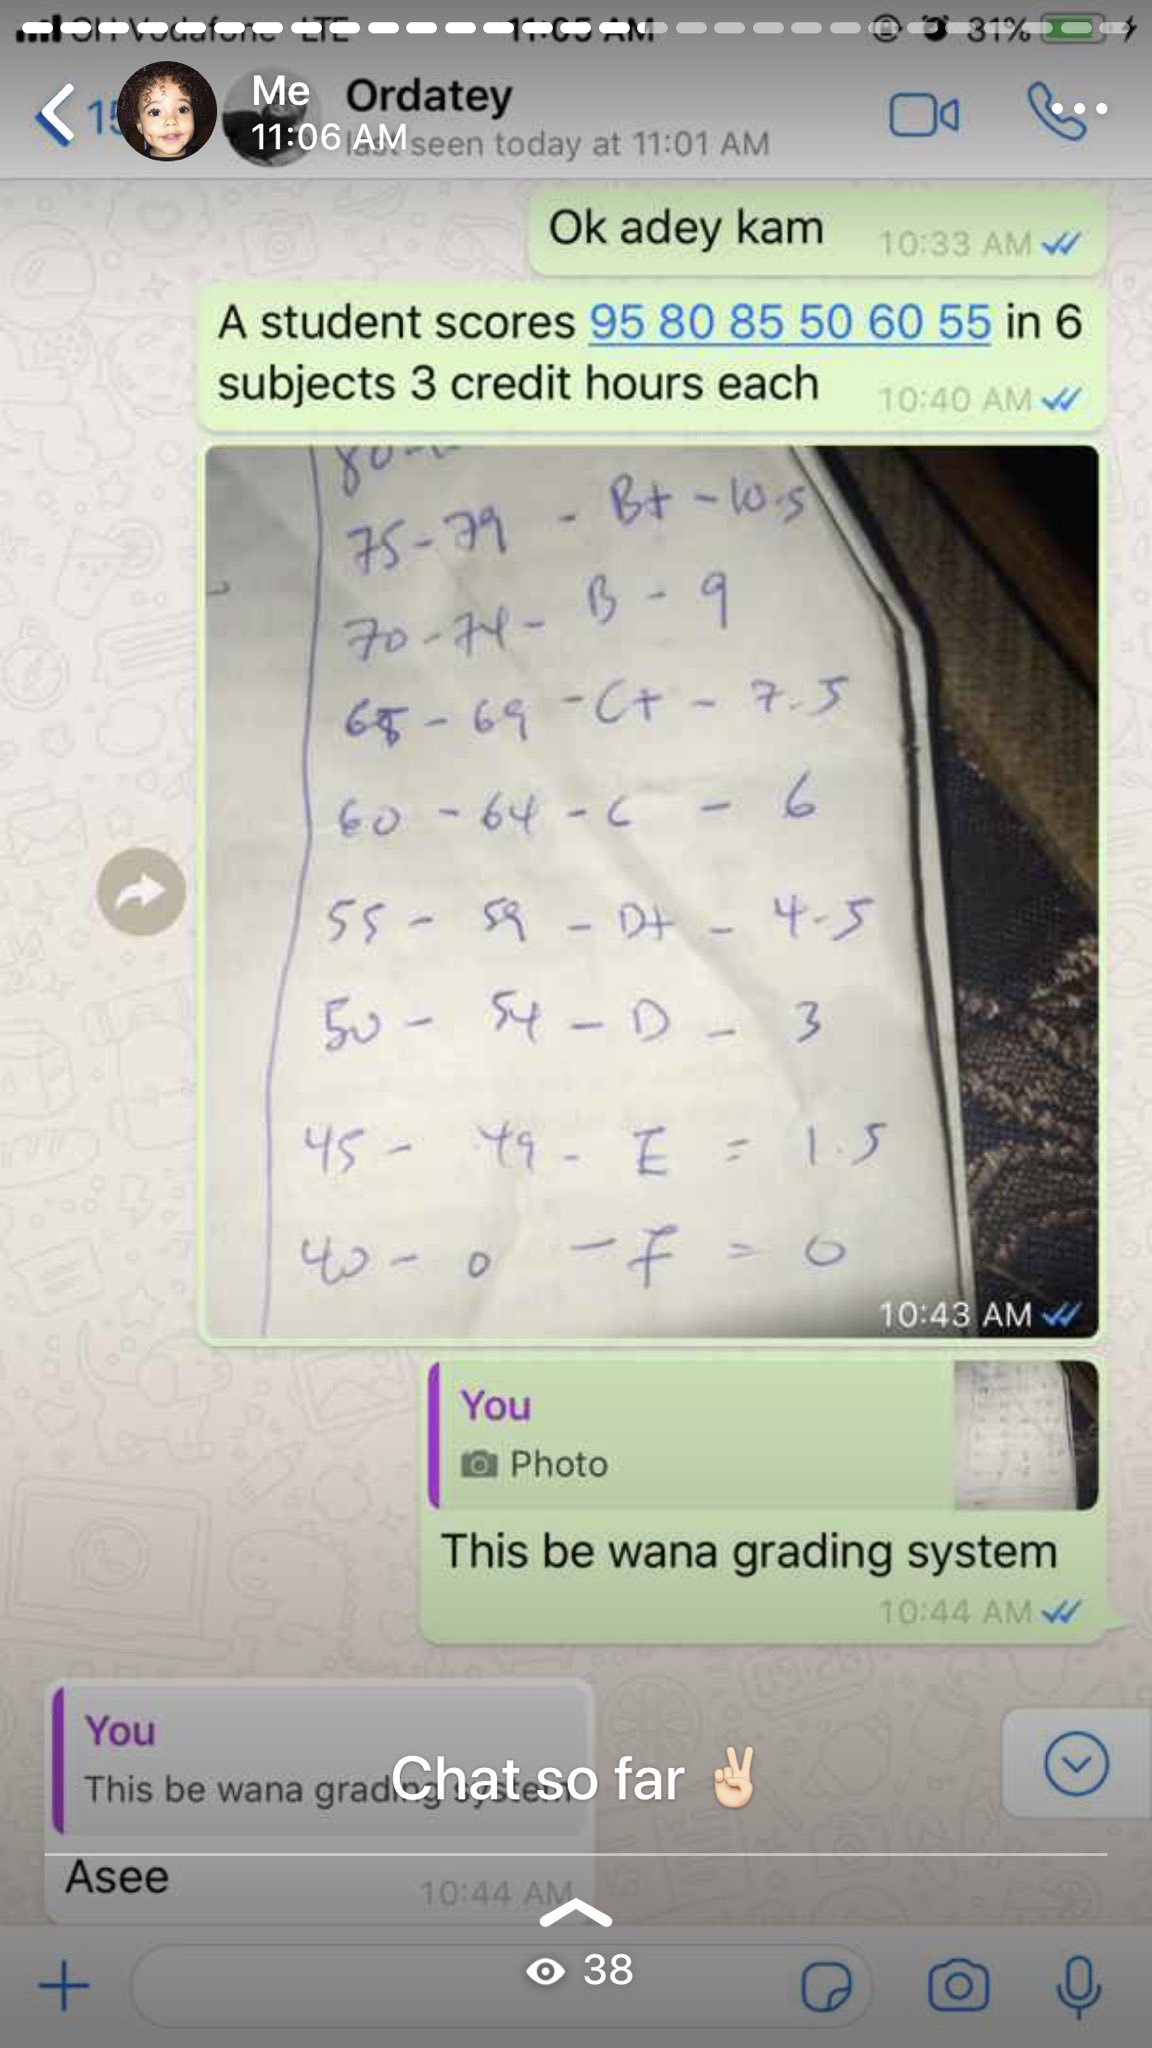 GH Vodafone LTE 11:05 AM 31%
Me Ordatey
11:06 AM last seen today at 11:01 AM
Ok adey kam 10:33 AM
A student scores 95 80 85 50 60 55 in 6
subjects 3 credit hours each 10:40 AM
75-79 - B+ - 10.5
70-74 - B - 9
65 - 69 - C+ - 7.5
60 - 64 - C - 6
55 - 59 - D+ - 4.5
50 - 54 - D - 3
45 - 49 - E = 1.5
40 - 0 - F = 0
10:43 AM
You
Photo
This be wana grading system
10:44 AM
You
This be wana grading system
Chat so far ✌🏻
Asee 10:44 AM
38